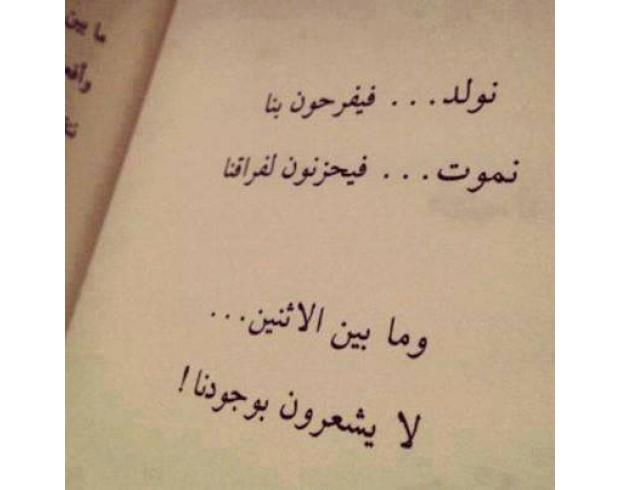 نولد... فيفرحون بنا
نموت... فيحزنون لفراقنا
وما بين الاثنين...
لا يشعرون بوجودنا!
ما بين